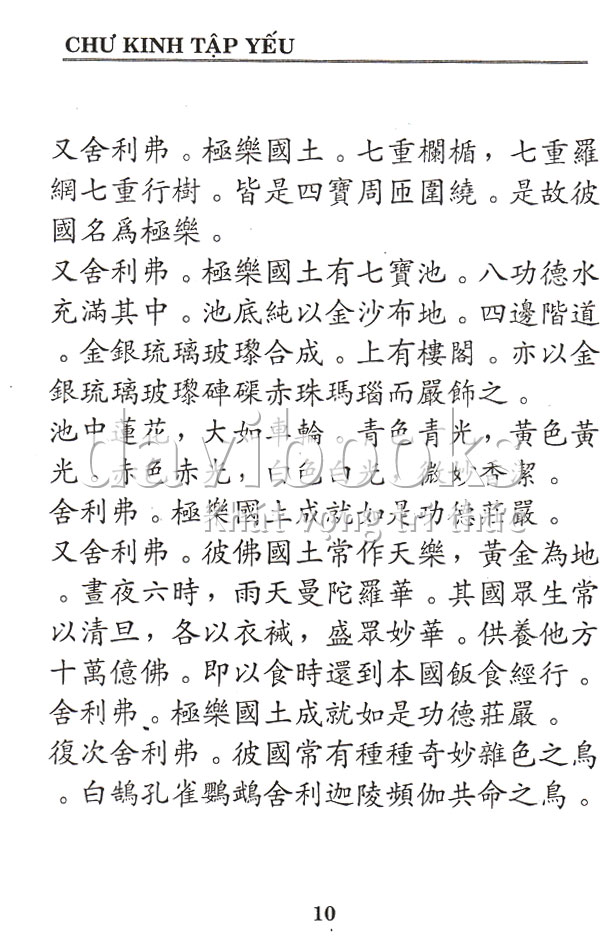 CHƯ KINH TẬP YẾU
又舍利弗。極樂國土。七重欄楯，七重羅
網七重行樹。皆是四寶周匝圍繞。是故彼
國名爲極樂。
又舍利弗。極樂國土有七寶池。八功德水
充滿其中。池底純以金沙布地。四邊階道
。金銀琉璃玻瓈合成。上有樓閣。亦以金
銀琉璃玻瓈硨磲赤珠瑪瑙而嚴飾之。
池中蓮花，大如車輪。青色青光，黃色黃
光。赤色赤光，白色白光，微妙香潔。
davibooks
舍利弗。極樂國土成就如是功德莊嚴。
Khát vọng tri thức
又舍利弗。彼佛國土常作天樂，黃金為地
。晝夜六時，雨天曼陀羅華。其國眾生常
以清旦，各以衣裓，盛眾妙華。供養他方
十萬億佛。即以食時還到本國飯食經行。
舍利弗。極樂國土成就如是功德莊嚴。
復次舍利弗。彼國常有種種奇妙雜色之鳥
。白鵠孔雀鸚鵡舍利迦陵頻伽共命之鳥。
10